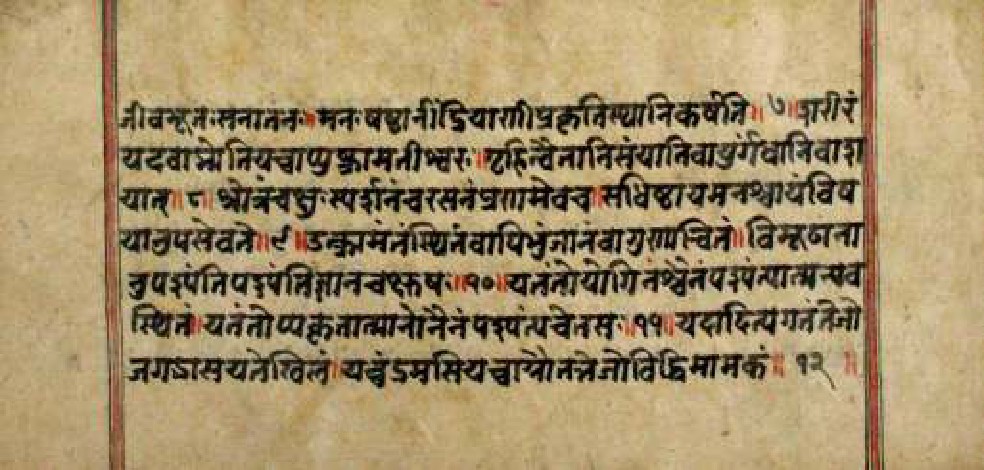 जीवभूतः सनातनः॥मनःषष्ठानींद्रियाणीप्रकृतिस्थानिकर्षति॥७॥शरीरं
यदवाप्नोतियच्चाप्युत्क्रामतीश्वरः॥गृहित्वैतानिसंयातिवायुर्गंधानिवाश
यात्॥८॥श्रोत्रंचक्षुःस्पर्शनंचरसनंघ्राणमेवच॥अधिष्ठायमनश्चायंविष
यानुपसेवते॥९॥उत्क्रामंतंस्थितंवापिभुंजानंवागुणान्वितं॥विमूढाना
नुपश्यंतिपश्यंतिज्ञानचक्षुषः॥१०॥यतंतोयोगिनश्चैनंपश्यंत्यात्मन्यव
स्थितं॥यतंतोप्यकृतात्मानोनैनंपश्यंत्यचेतसः॥११॥यदादित्यगतंतेजो
जगद्भासयतेखिलं॥यच्चंद्रमसियच्चाग्नौतत्तेजोविद्धिमामकं॥१२॥